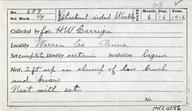 No. 289 Chestnut sided Warbler 6/16 1916
Set Mark 4/4
Collected by for H W Carriger
Locality Warren Co Penna
Set complete, Identity certain Incubation begun
Nest, 2 ft up in clump of low brush
and briars
Nest with set.